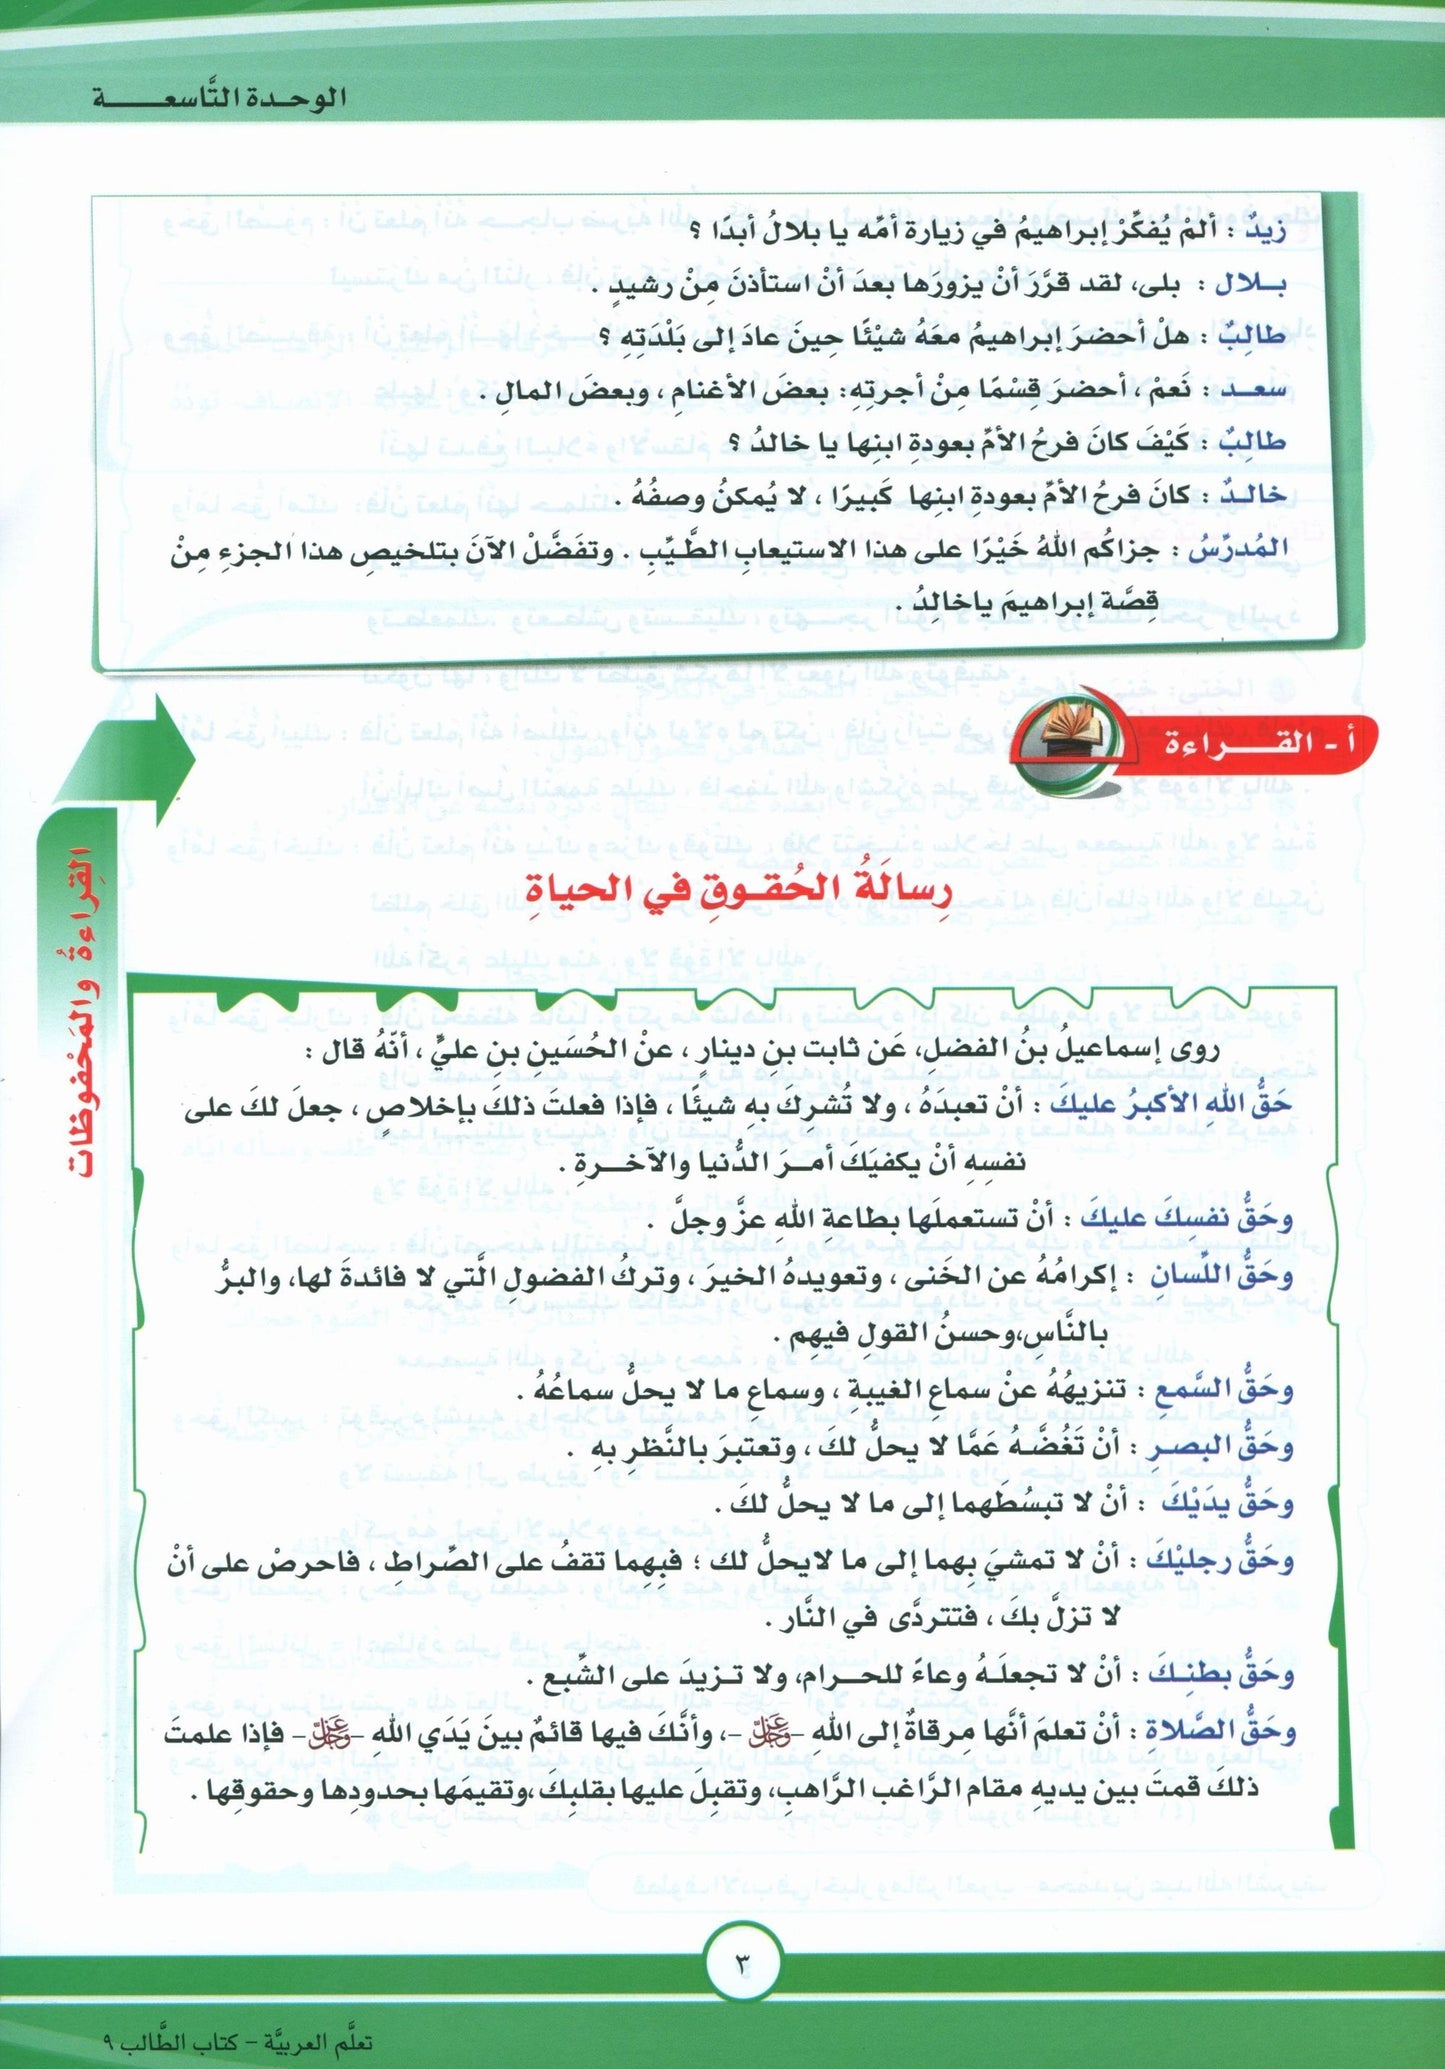 الوحـدة التَّاسعـــــة
زيدٌ : ألمْ يُفكِّرْ إبراهيمُ في زيارة أمِّه يا بلالُ أبدًا ؟
بـلال : بلى، لقد قرَّرَ أنْ يزورَها بعدَ أنْ استأذنَ مِنْ رشيدٍ .
طالِبٌ : هلْ أحضرَ إبراهيمُ معَهُ شيْئًا حِينَ عادَ إلى بَلْدَتِهِ ؟
سعـد : نَعمْ ، أحضرَ قِسْمًا مِنْ أجرتِهِ: بعضَ الأغنامِ ، وبعضَ المالِ .
طالِبٌ : كَيْفَ كانَ فرحُ الأمِّ بعودةِ ابنِها يا خالدُ ؟
خالـدٌ : كانَ فرحُ الأمِّ بعودةِ ابنِها كَبيرًا ، لا يُمكنُ وصفُهُ .
المُدرِّسُ : جزاكُم اللهُ خَيْرًا على هذا الاستيعابِ الطَّيِّبِ . وتفَضَّلْ الآنَ بتلخيصِ هذا الجزءِ مِنْ
قِصَّة إبراهيمَ ياخالِدُ .
أ - القــراءة
القِراءةُ والمَحْفوظات
رِسالَةُ الحُقـوقِ في الحياةِ
روى إسماعيلُ بنُ الفضلِ، عَن ثابت بن دينارٍ ، عنْ الحُسَينِ بنِ عليٍّ ، أنَّهُ قال :
حَقُّ اللهِ الأكبرُ عليكَ : أنْ تعبدَهُ ، ولا تُشرِكَ بهِ شيئًا ، فإذا فعلتَ ذلكَ بإخلاصٍ ، جعلَ لكَ على
نفسِهِ أنْ يكفيَكَ أمـرَ الدُّنيا والآخـرةِ .
وحَقُّ نفسِكَ عليكَ : أنْ تستعملَها بطاعةِ اللهِ عزَّ وجلَّ .
وحَقُّ اللِّسانِ : إكرامُهُ عن الخَنَى ، وتعويدهُ الخير ، وتركُ الفضولِ الَّتي لا فائدةَ لها، والبرُّ
بالنَّاسِ،وحسنُ القولِ فيهِم .
وحَقُّ السَّمعِ : تنزيهُهُ عنْ سماعِ الغيبةِ ، وسماعِ ما لا يحلُّ سماعُهُ .
وحَقُّ البصـرِ : أنْ تَغُضَّـهُ عَمَّا لا يحلُّ لكَ ، وتعتبرَ بالنَّظرِ بهِ .
وحَقُّ يدَيْكَ : أنْ لا تبسُطَهما إلى ما لا يحلُّ لكَ .
وحَقُّ رجليْكَ : أنْ لا تمشيَ بِهما إلى ما لايحلُّ لك ؛ فبِهِما تقفُ على الصِّراطِ ، فاحرصْ على أنْ
لا تزلَّ بكَ ، فتتردَّى في النَّار .
وحَقُّ بطنِـكَ : أنْ لا تجعلَـهُ وعاءً للحـرام، ولا تـزيدَ على الشِّبع .
وحَقُّ الصَّلاةِ : أنْ تعلمَ أنَّها مرقاةٌ إلى اللهِ -عَزَّوَجَلَّ -، وأنَّكَ فيها قائمٌ بينَ يَدَي اللهِ -عَزَّوَجَلَّ- فإذا علمتَ
ذلكَ قمتَ بين يديهِ مقام الرَّاغب الرَّاهبِ، وتقبِلَ عليها بقلبِكَ ،وتقيمَها بحدودِها وحقوقِها .
٣
تعلَّم العربيَّة - كتاب الطَّالب ٩